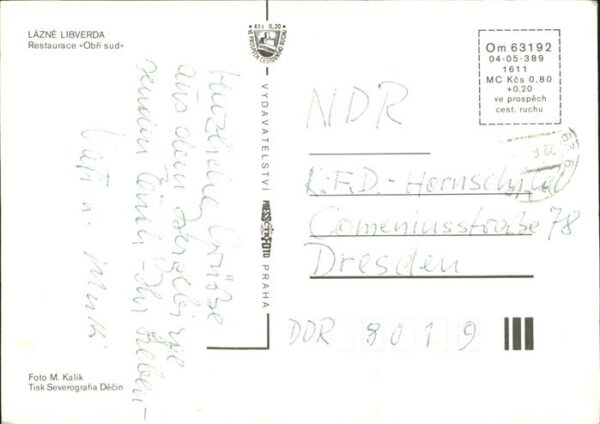 LÁZNĚ LIBVERDA
Restaurace »Obří sud«
Herzliche Grüße
aus dem Isergebirge
senden Euch - Ihr Lieben -
Vati u. Mutti
Foto M. Kalík
Tisk Severografia Děčín
Kčs 0,20
VE PROSPĚCH CESTOVNÍHO RUCHU
VYDAVATELSTVÍ PRESSFOTO PRAHA
Om 63192
04-05-389
1611
MC Kčs 0,80
+0,20
ve prospěch
cest. ruchu
NDR
K.F.D.-Hornschihl
Comeniusstraße 78
Dresden
DDR 8019